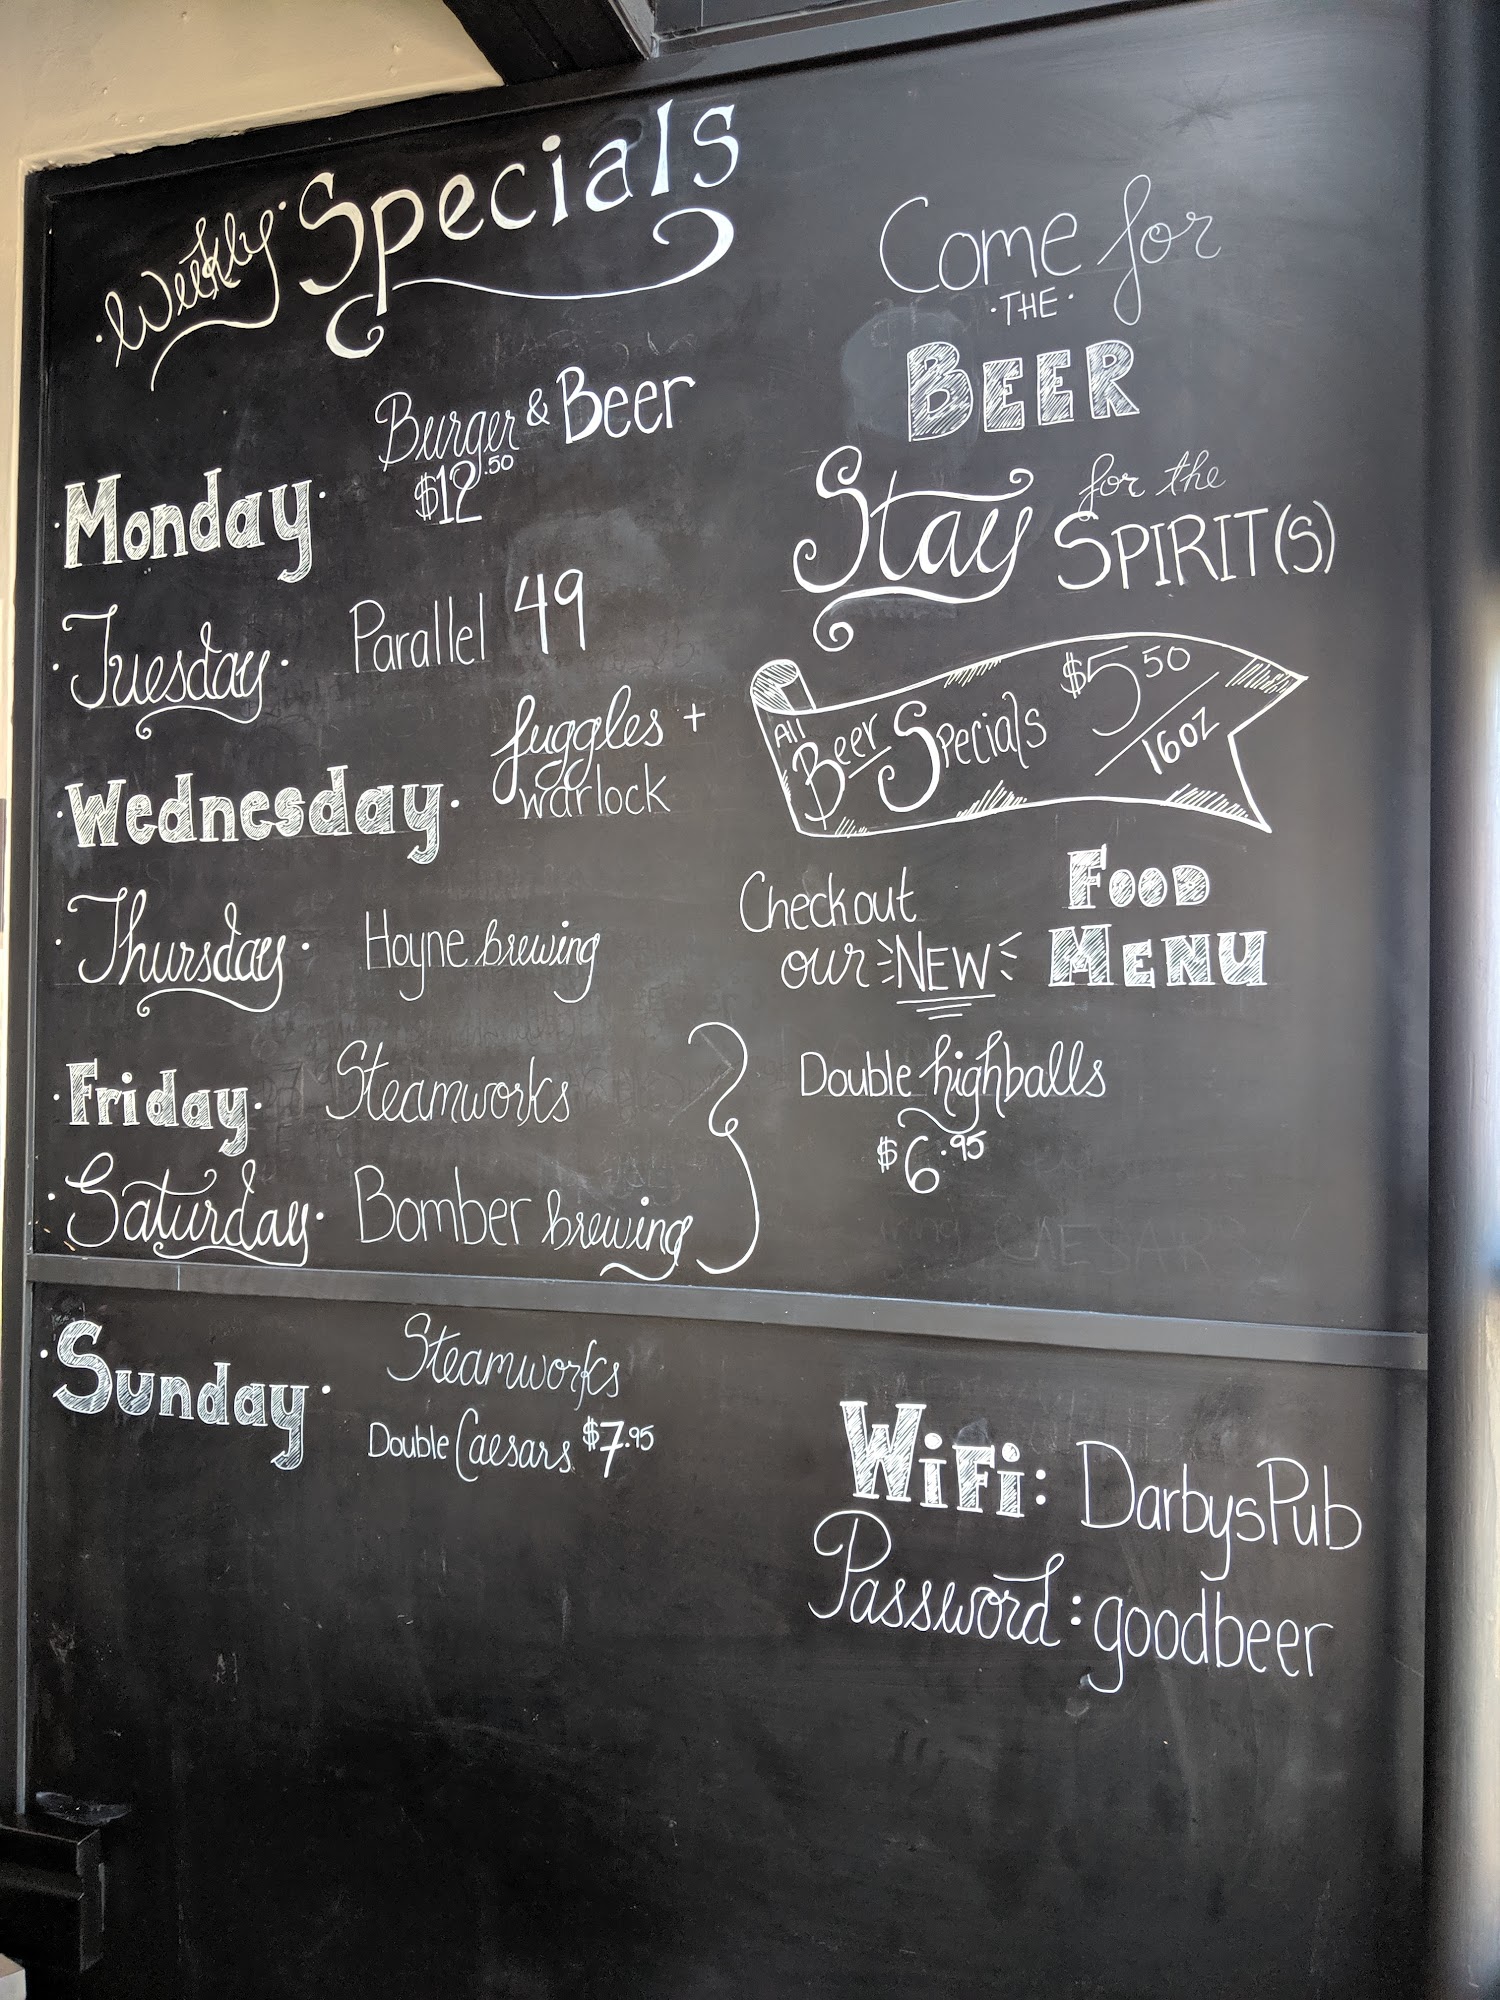 Weekly Specials
Burger & Beer
Monday $12.50
Tuesday Parallel 49
Wednesday fuggles +
warlock
Thursday Hoyne brewing
Friday Steamworks
Saturday Bomber brewing
Sunday Steamworks
Double Caesars $7.95
Come for
THE
BEER
Stay for the
SPIRIT(S)
All Beer Specials $5.50/16oz
Check out
our NEW
FOOD
MENU
Double highballs
$6.95
CAESAR
WiFi: DarbysPub
Password: goodbeer